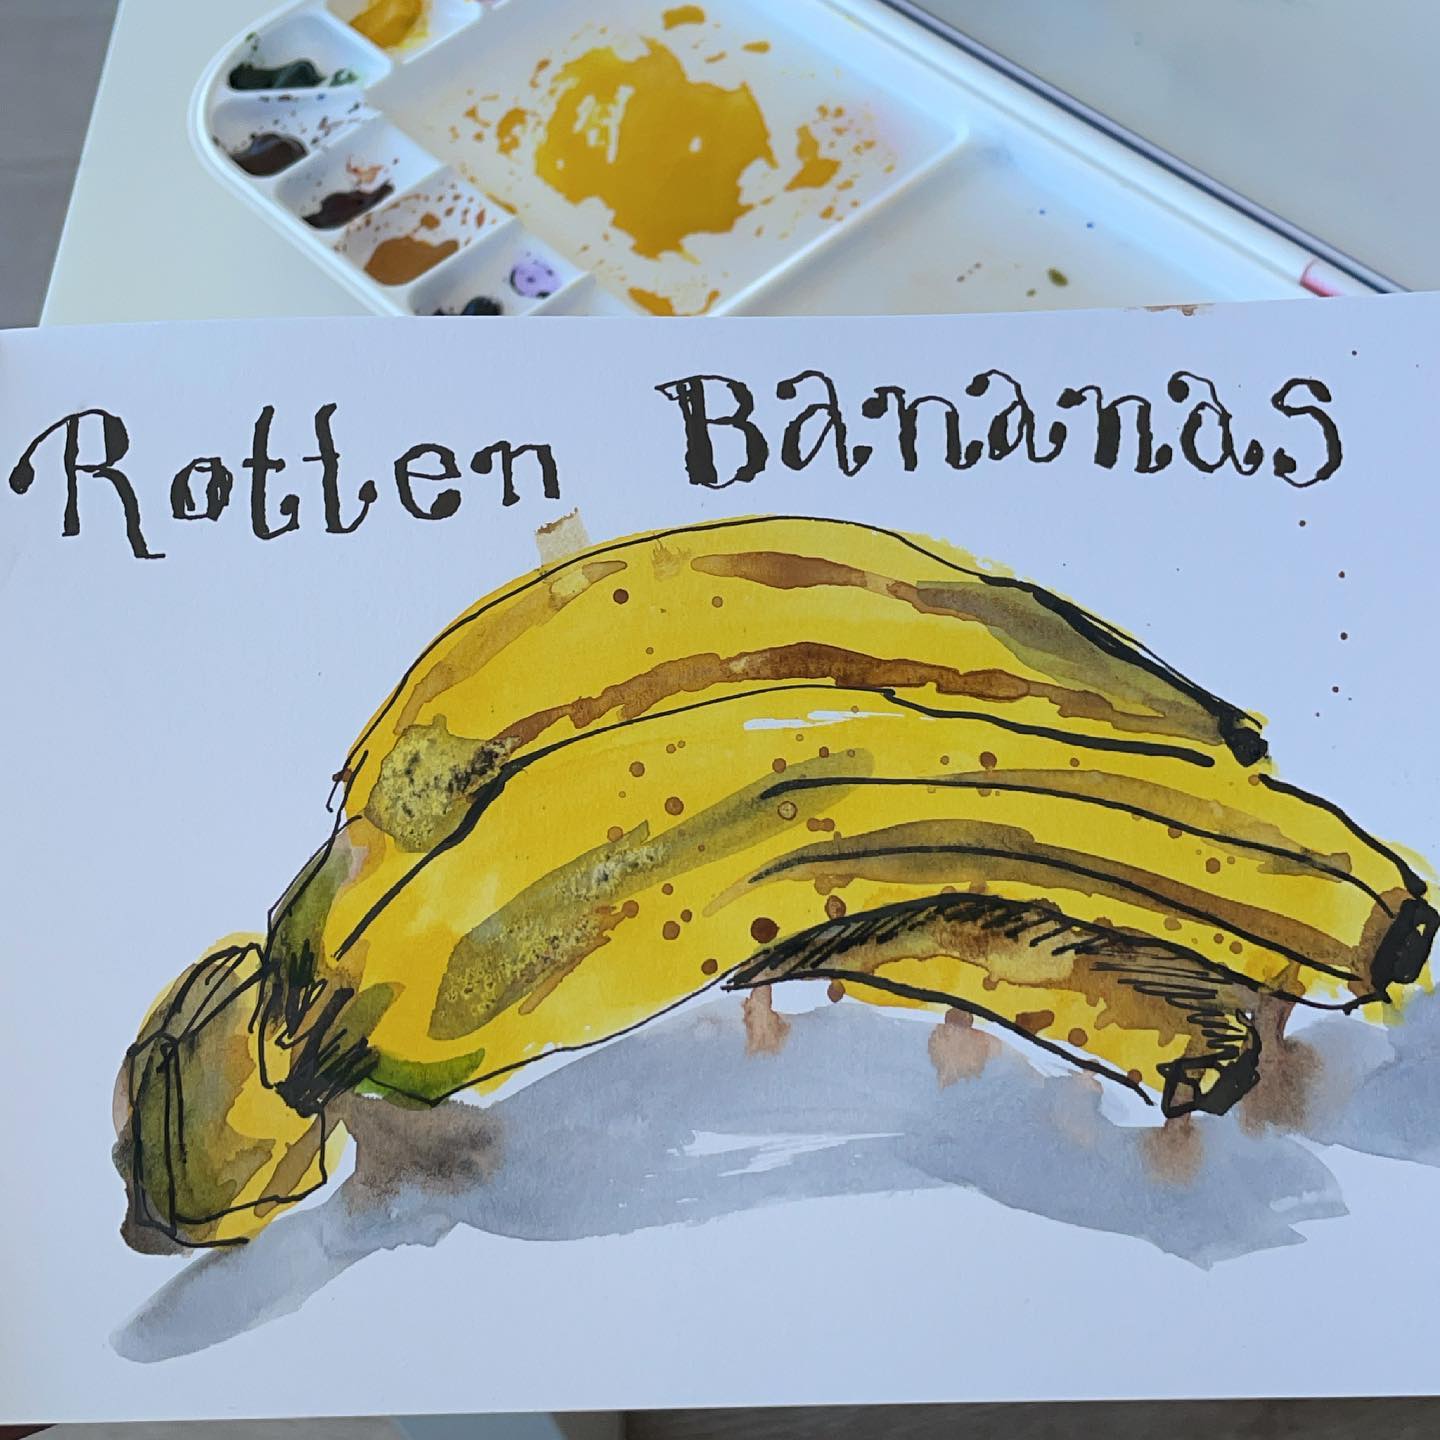 Rotten Bananas